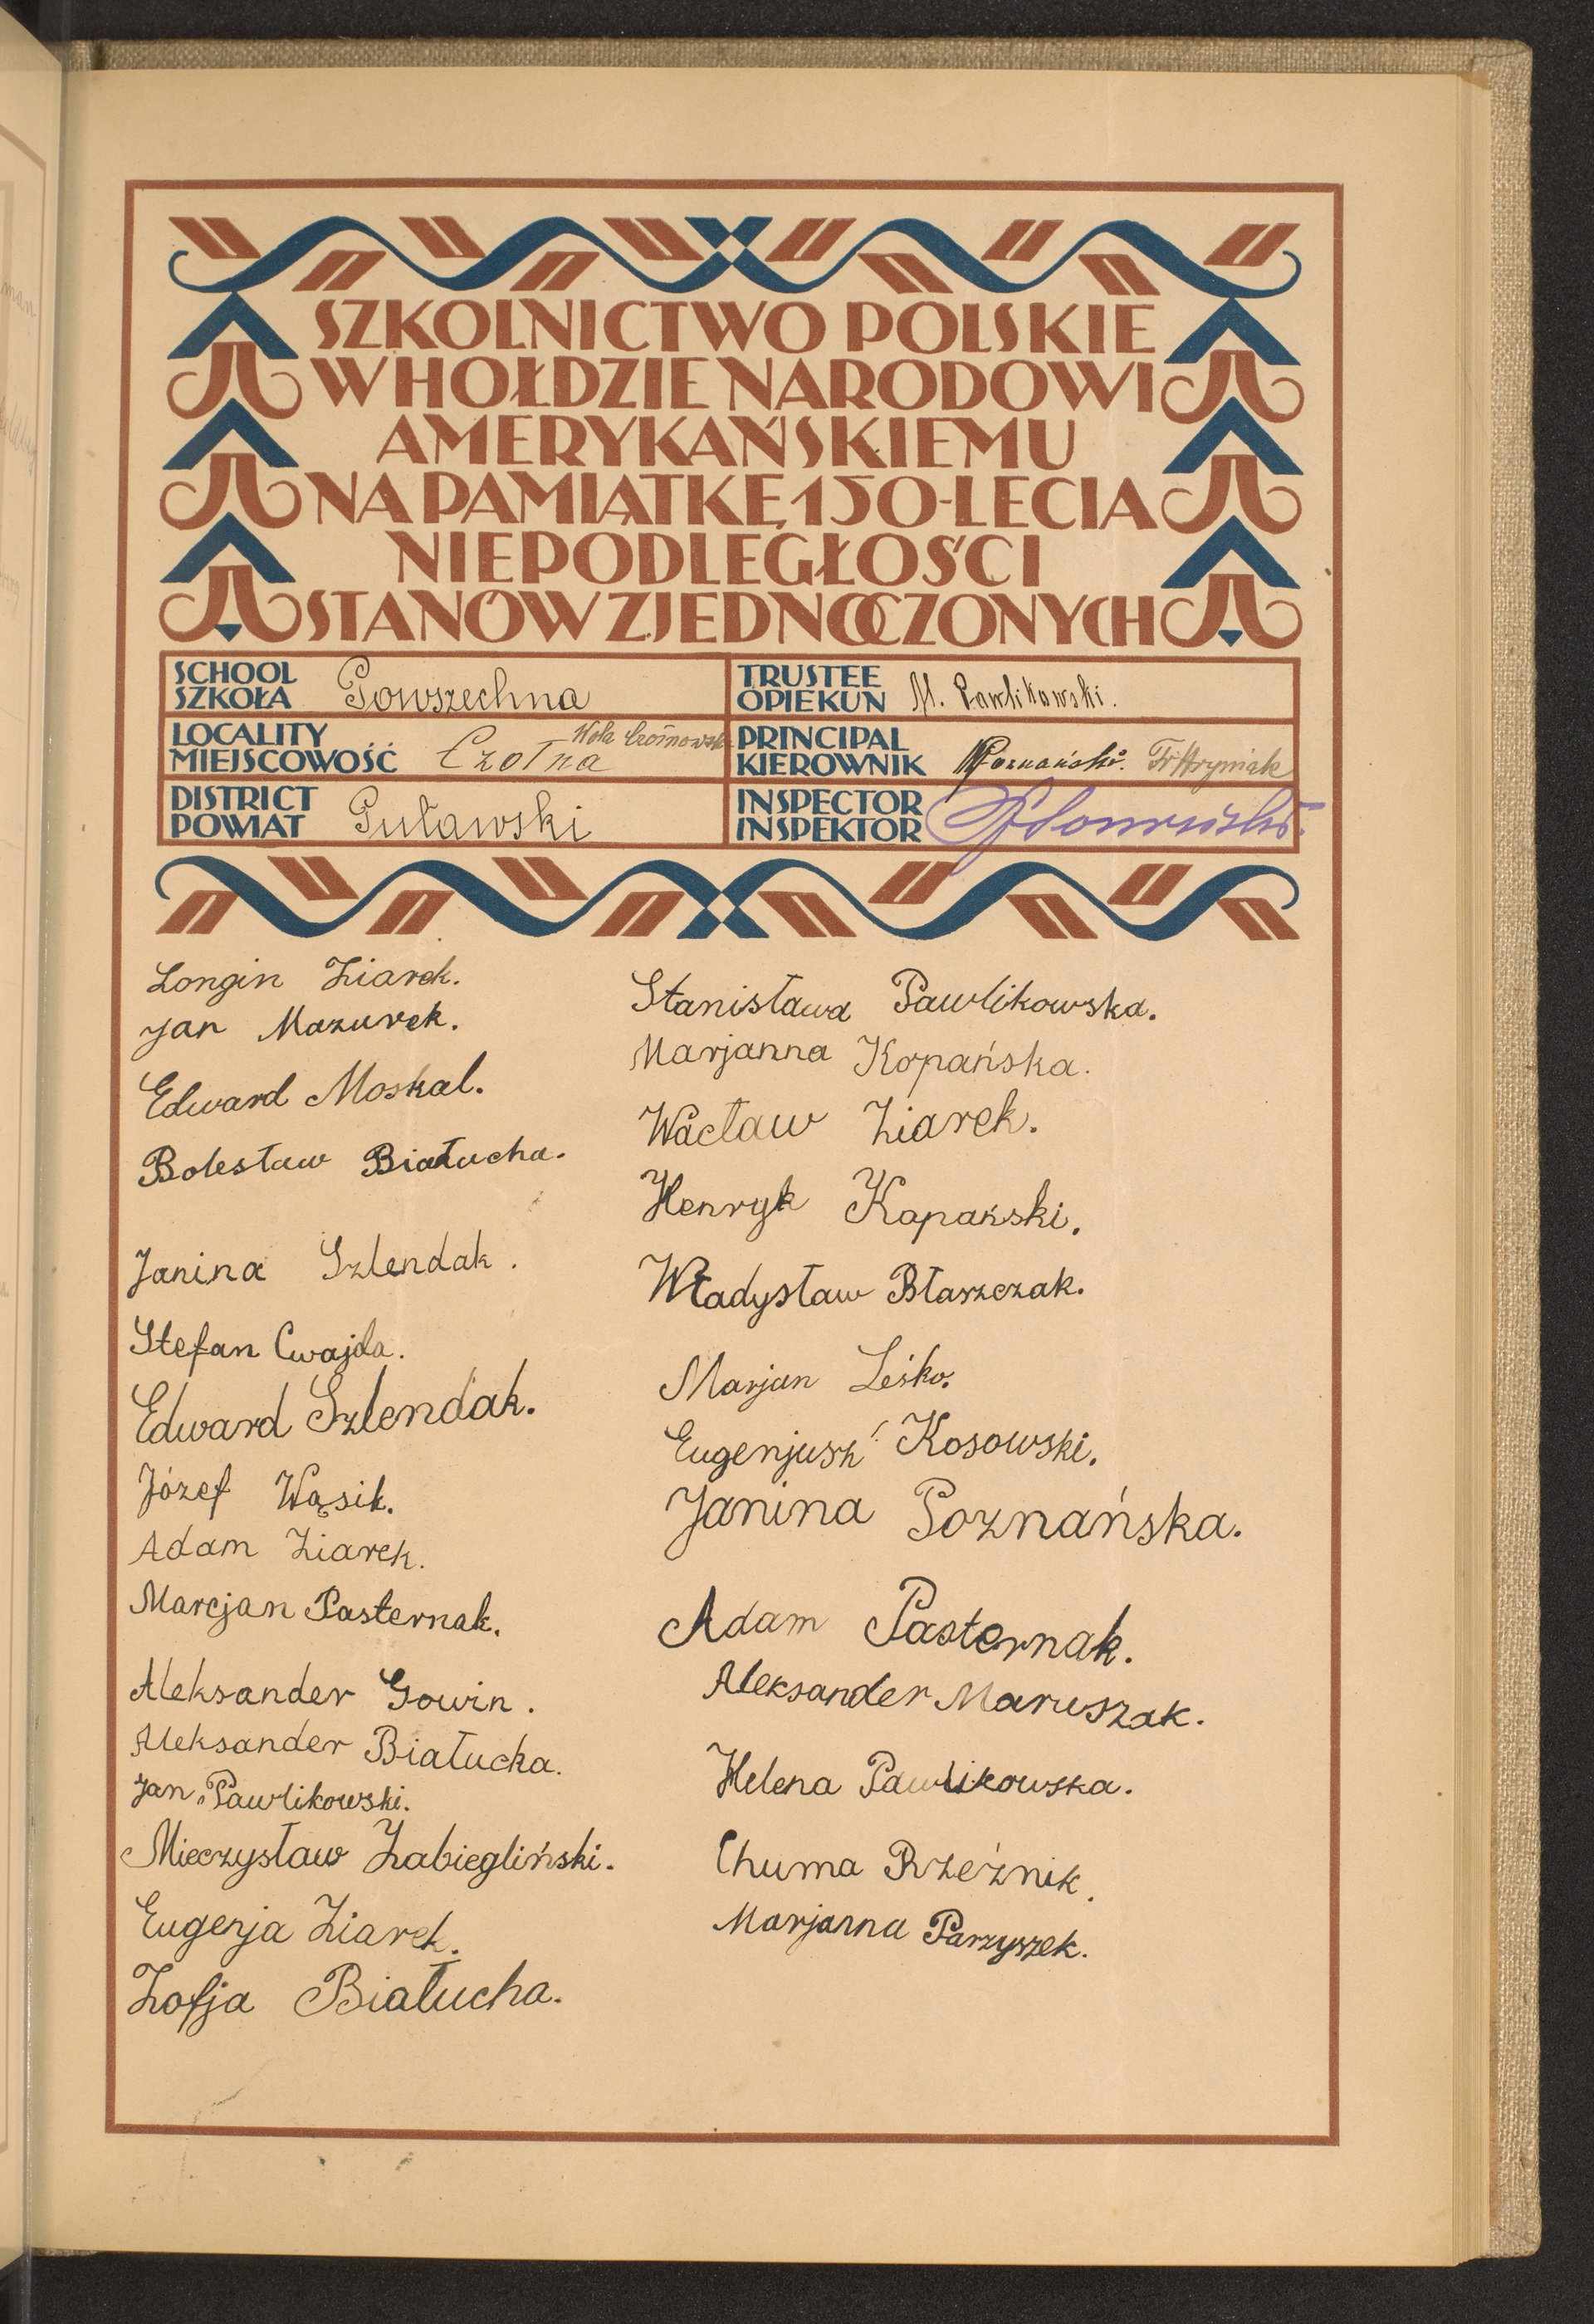 SZKOLNICTWO POLSKIE
W HOŁDZIE NARODOWI
AMERYKAŃSKIEMU
NA PAMIĄTKĘ 150-LECIA
NIEPODLEGŁOŚCI
STANÓW ZJEDNOCZONYCH
SCHOOL
SZKOŁA Powszechna
TRUSTEE
OPIEKUN M. Pawlikowski.
LOCALITY
MIEJSCOWOŚĆ Czołna Wola
PRINCIPAL
KIEROWNIK Poznański.
DISTRICT
POWIAT Puławski
INSPECTOR
INSPEKTOR
Longin Ziarek.
Jan Mazurek.
Edward Moskal.
Bolesław Białucha.
Janina Szlendak.
Stefan Cwajda.
Edward Szlendak.
Józef Wąsik.
Adam Ziarek.
Marcjan Pasternak.
Aleksander Gowin.
Aleksander Białucha.
Jan Pawlikowski.
Mieczysław Zabiegliński.
Eugenja Ziarek.
Zofja Białucha.
Stanisława Pawlikowska.
Marjanna Kopańska.
Wacław Ziarek.
Henryk Kopański.
Władysław Błaszczak.
Marjan Leśko.
Eugenjusz Kosowski.
Janina Poznańska.
Adam Pasternak.
Aleksander Maruszak.
Helena Pawlikowska.
Chuma Rzeźnik.
Marjanna Parzyszek.